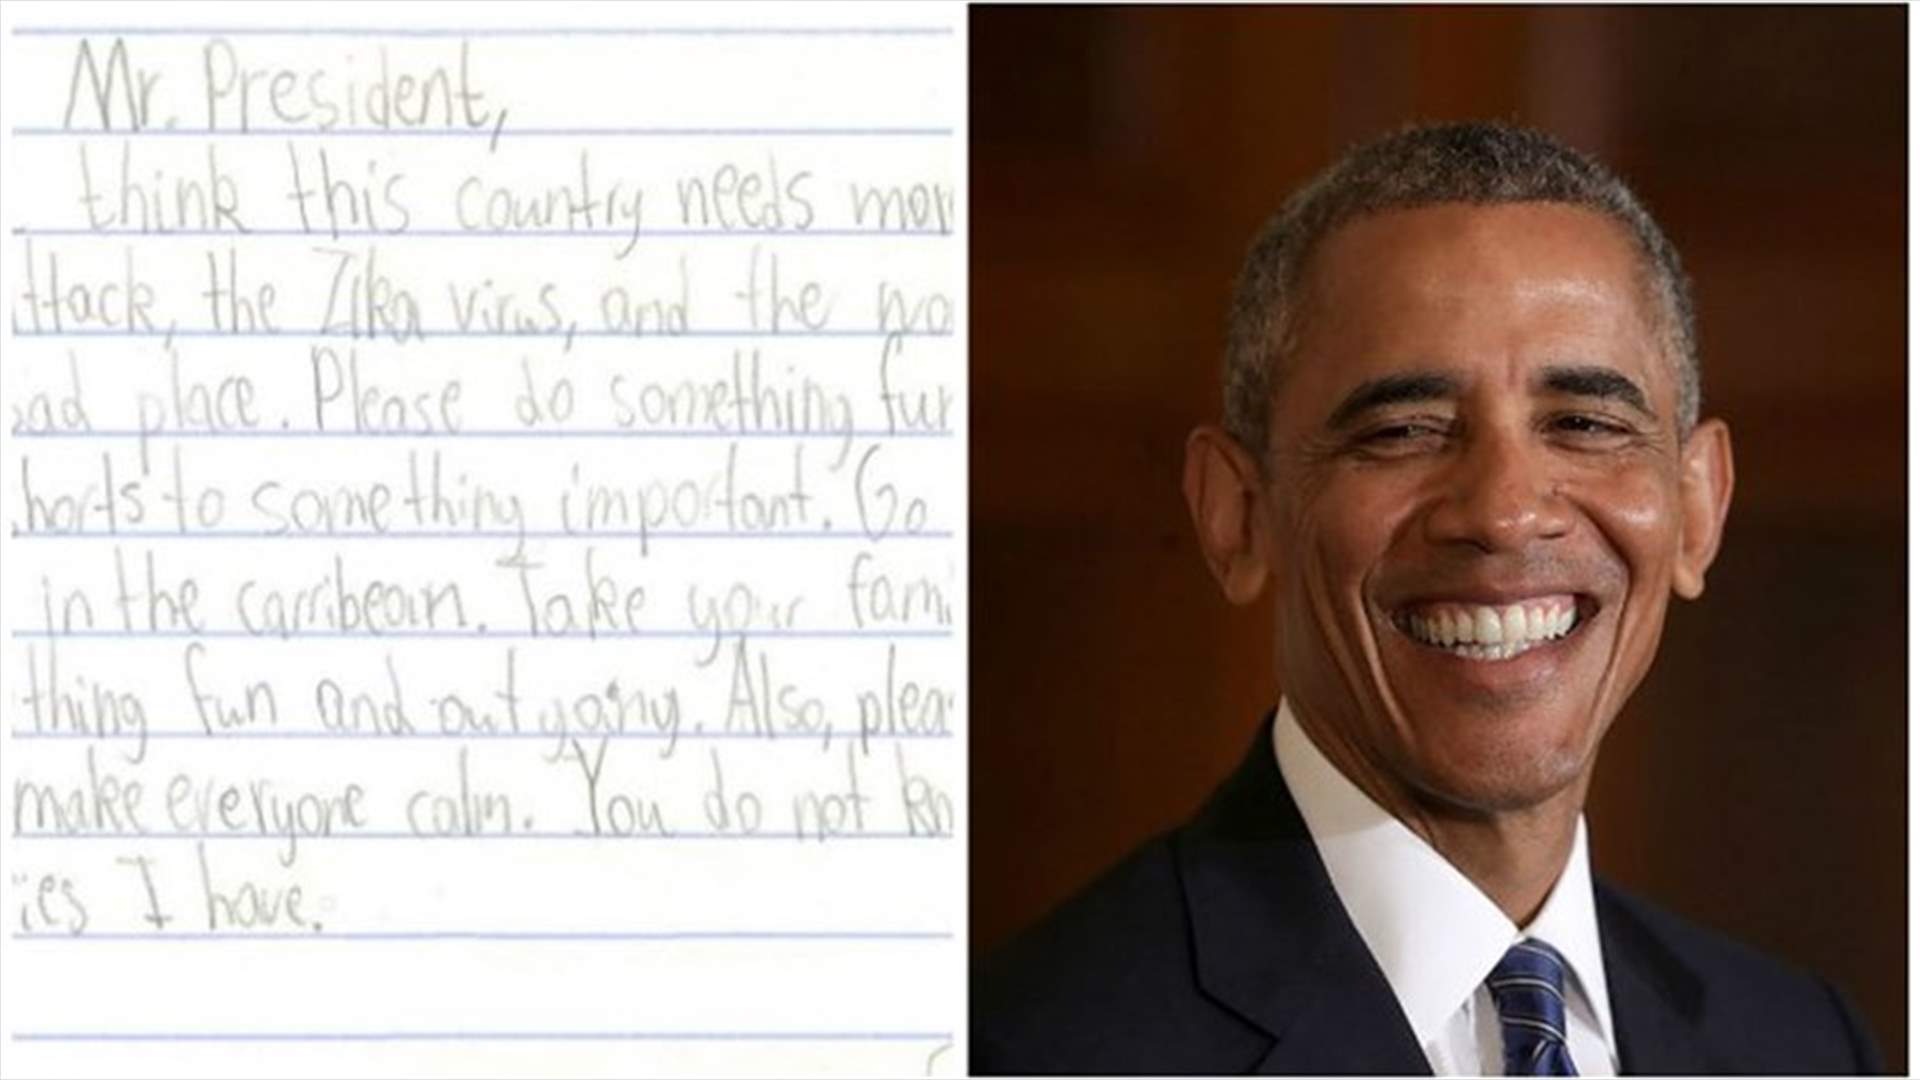 Mr. President,
think this country needs mor
ttack, the Zika virus, and the wo
ad place. Please do something fun
horts to something important. Go
in the carribean. Take your fami
thing fun and outgoing. Also, pleas
make everyone calm. You do not kn
ies I have.